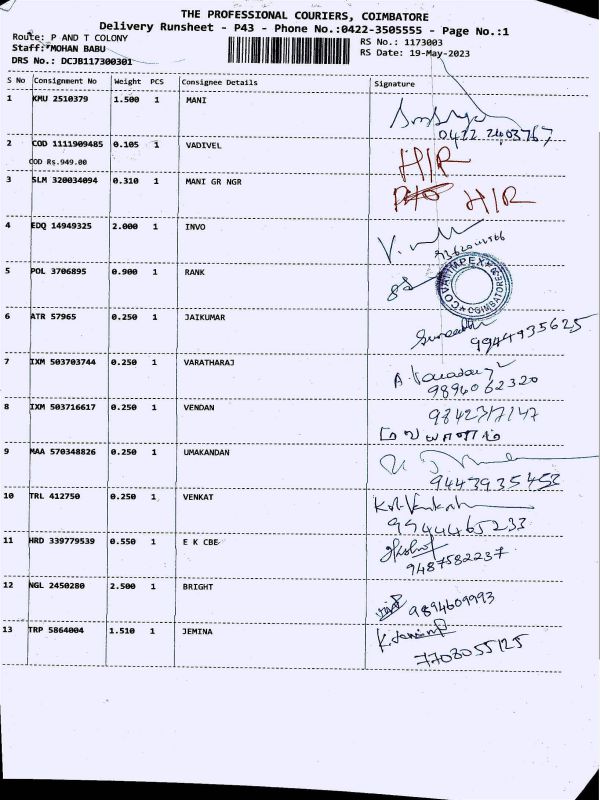 THE PROFESSIONAL COURIERS, COIMBATORE
Delivery Runsheet - P43 - Phone No.:0422-3505555 - Page No.:1
Route: P AND T COLONY
RS No.: 1173003
Staff:*MOHAN BABU
RS Date: 19-May-2023
DRS No.: DCJB117300301
S No Consignment No Weight PCS Consignee Details Signature
1 KMU 2510379 1.500 1 MANI
0422 2403767
2 COD 1111909485 0.105 1 VADIVEL H/R
COD Rs.949.00
3 SLM 320034094 0.310 1 MANI GR NGR H/R
4 EDQ 14949325 2.000 1 INVO
5 POL 3706895 0.900 1 RANK
COIMBATORE
6 ATR 57965 0.250 1 JAIKUMAR
9944935625
7 IXM 503703744 0.250 1 VARATHARAJ
9896062320
8 IXM 503716617 0.250 1 VENDAN
9842317147
9 MAA 570348826 0.250 1 UMAKANDAN
9443935453
10 TRL 412750 0.250 1 VENKAT
9944465233
11 HRD 339779539 0.550 1 E K CBE
9487582237
12 NGL 2450280 2.500 1 BRIGHT
9894609993
13 TRP 5864004 1.510 1 JEMINA
7708055125